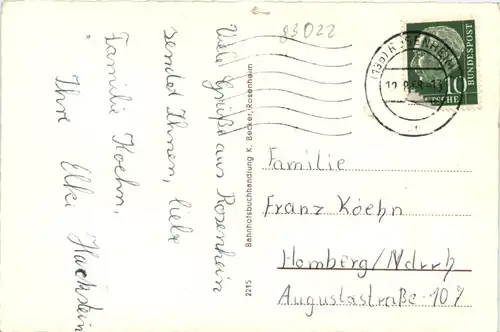 83022
Viele Grüße aus Rosenheim
sendet Ihnen, liebe
Familie Koehn,
Ihre Elke Hackstein
Bahnhofsbuchhandlung K. Becker, Rosenheim
2215
(13b) ROSENHEIM
DEUTSCHE BUNDESPOST
10
Familie
Franz Koehn
Homberg/Ndrrh
Augustastraße 107